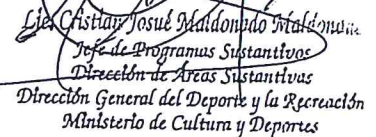 Lic. Cristian Josué Maldonado
Jefe de Programas Sustantivos
Dirección de Áreas Sustantivas
Dirección General del Deporte y la Recreación
Ministerio de Cultura y Deportes